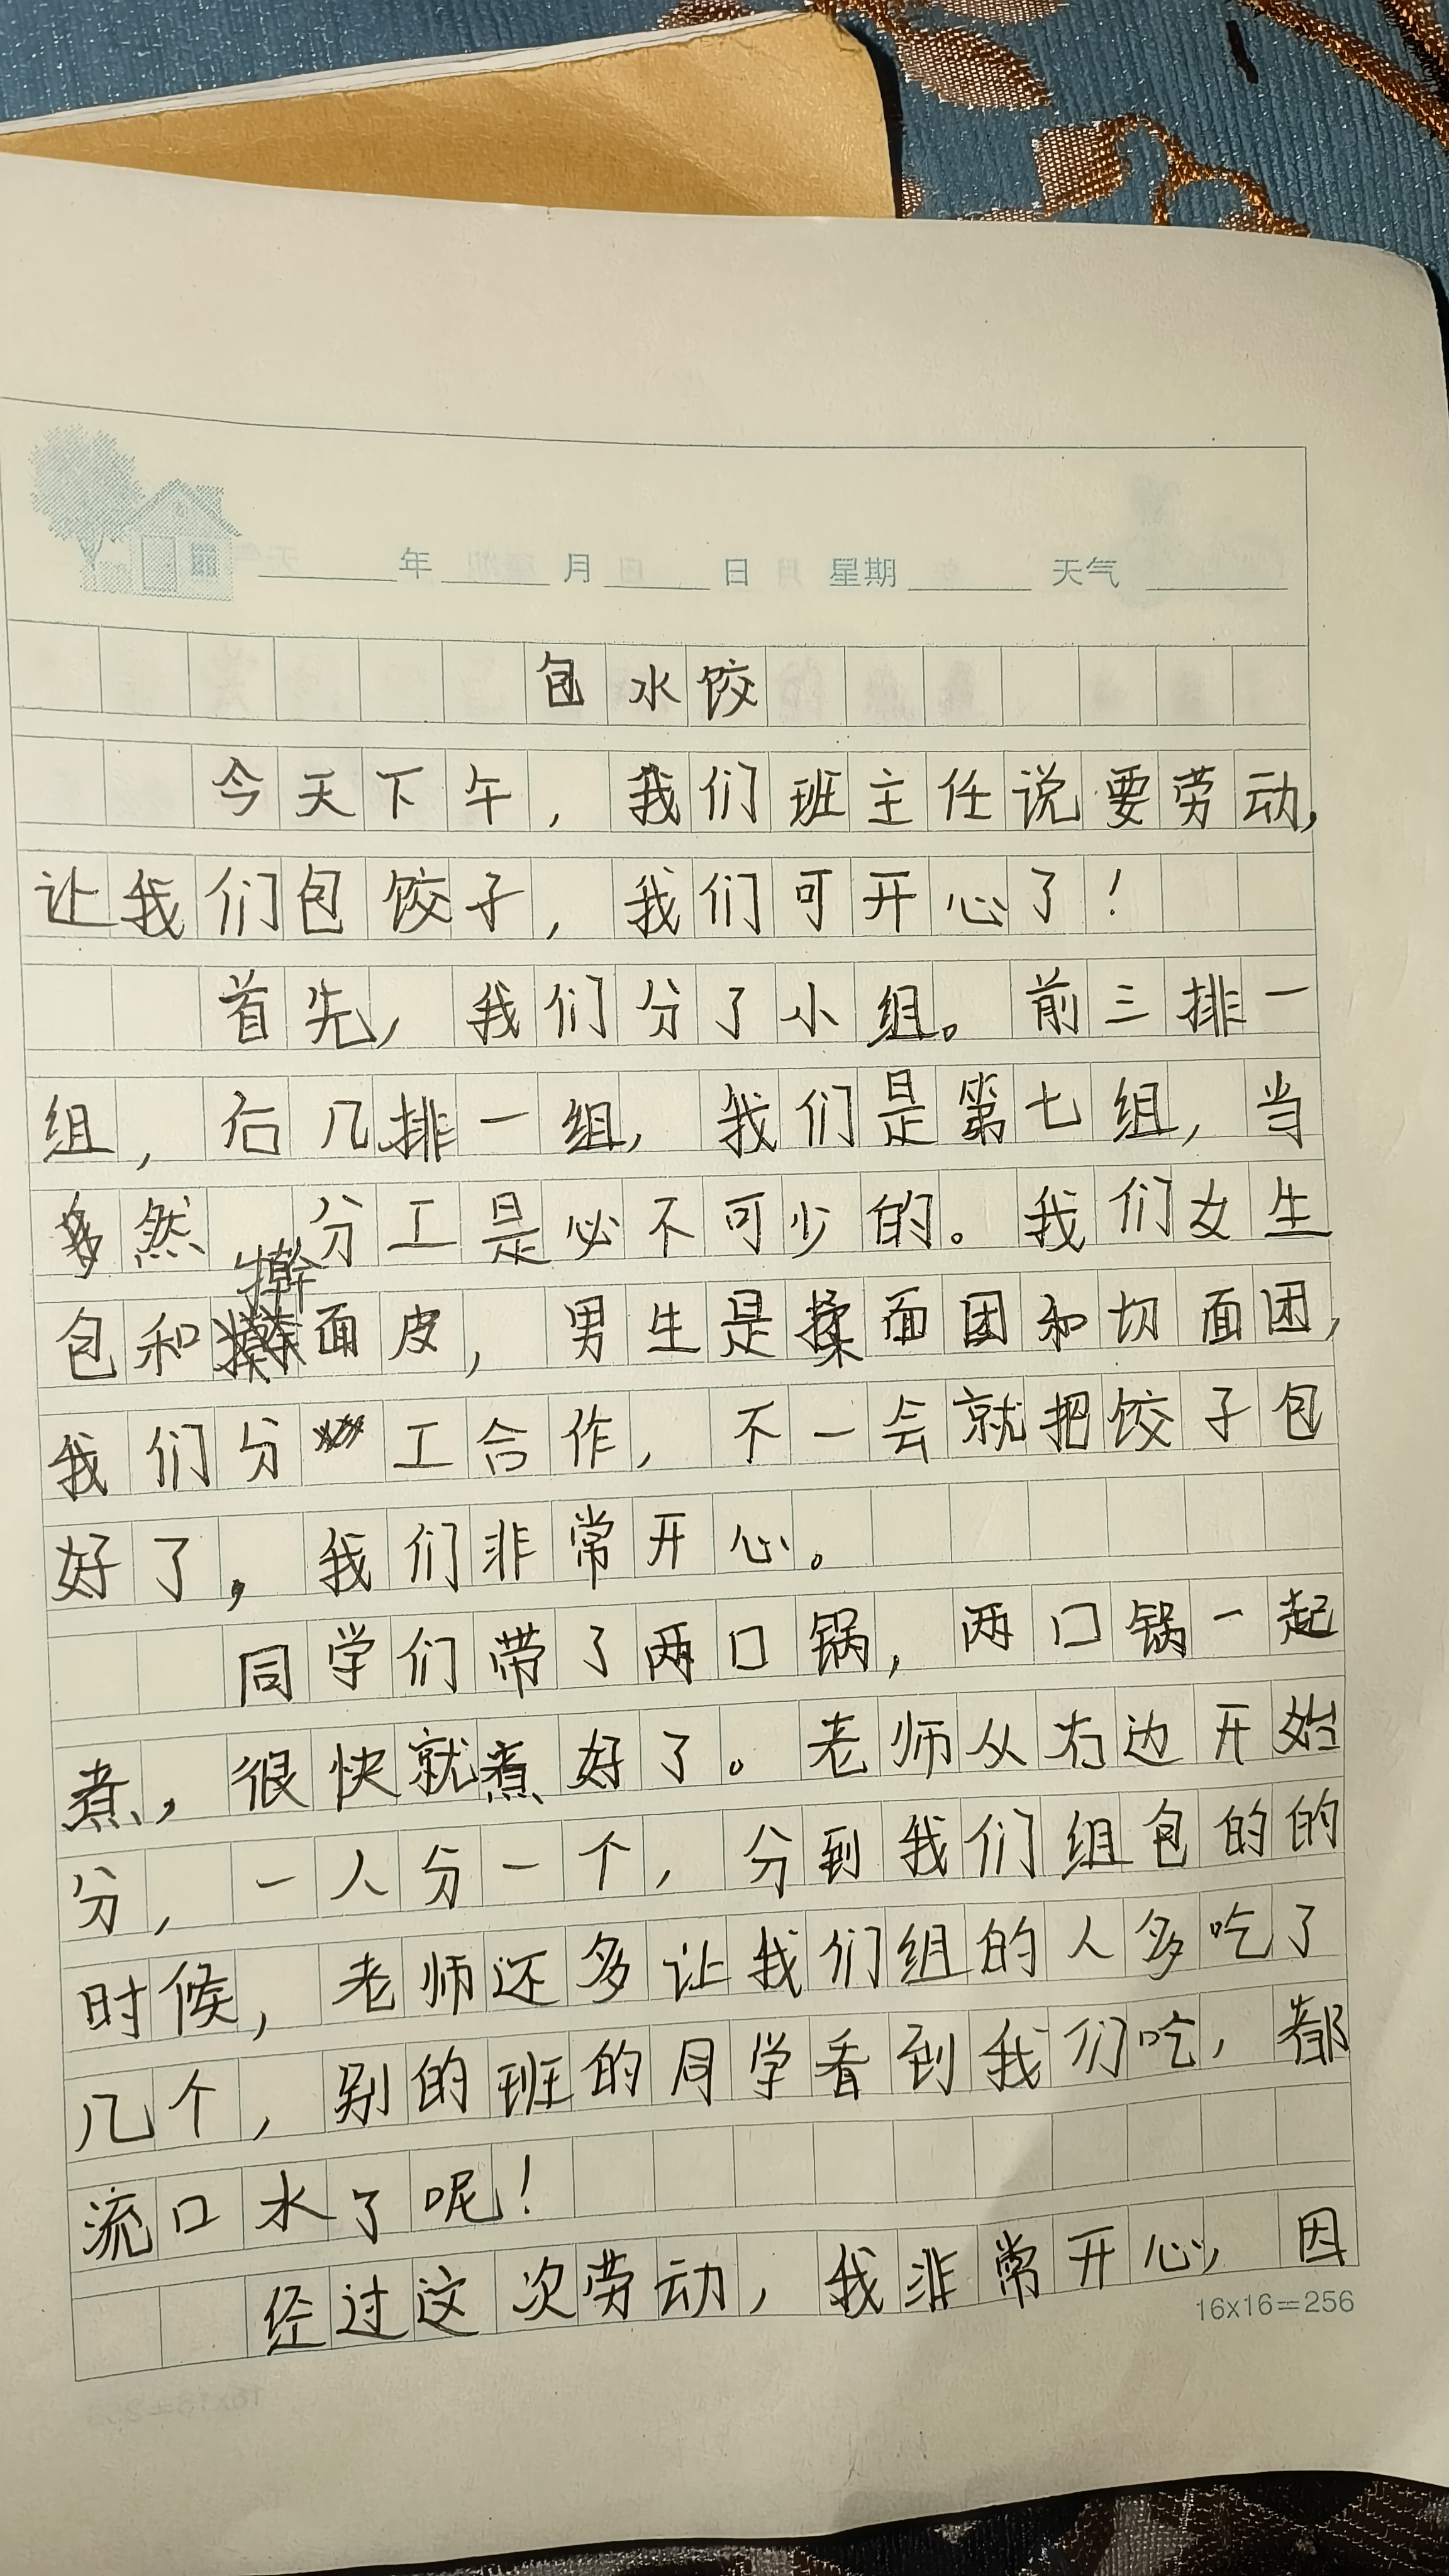 年 月 日 星期 天气
包水饺
今天下午，我们班主任说要劳动，
让我们包饺子，我们可开心了！
首先，我们分了小组。前三排一
组，后几排一组，我们是第七组，当
然 分工是必不可少的。我们女生
包和擀面皮，男生是揉面团和切面团，
我们分工合作，不一会就把饺子包
好了，我们非常开心。
同学们带了两口锅，两口锅一起
煮，很快就煮好了。老师从右边开始
分，一人分一个，分到我们组包的的
时候，老师还多让我们组的人多吃了
几个，别的班的同学看到我们吃，都
流口水了呢！
经过这次劳动，我非常开心，因
16x16=256